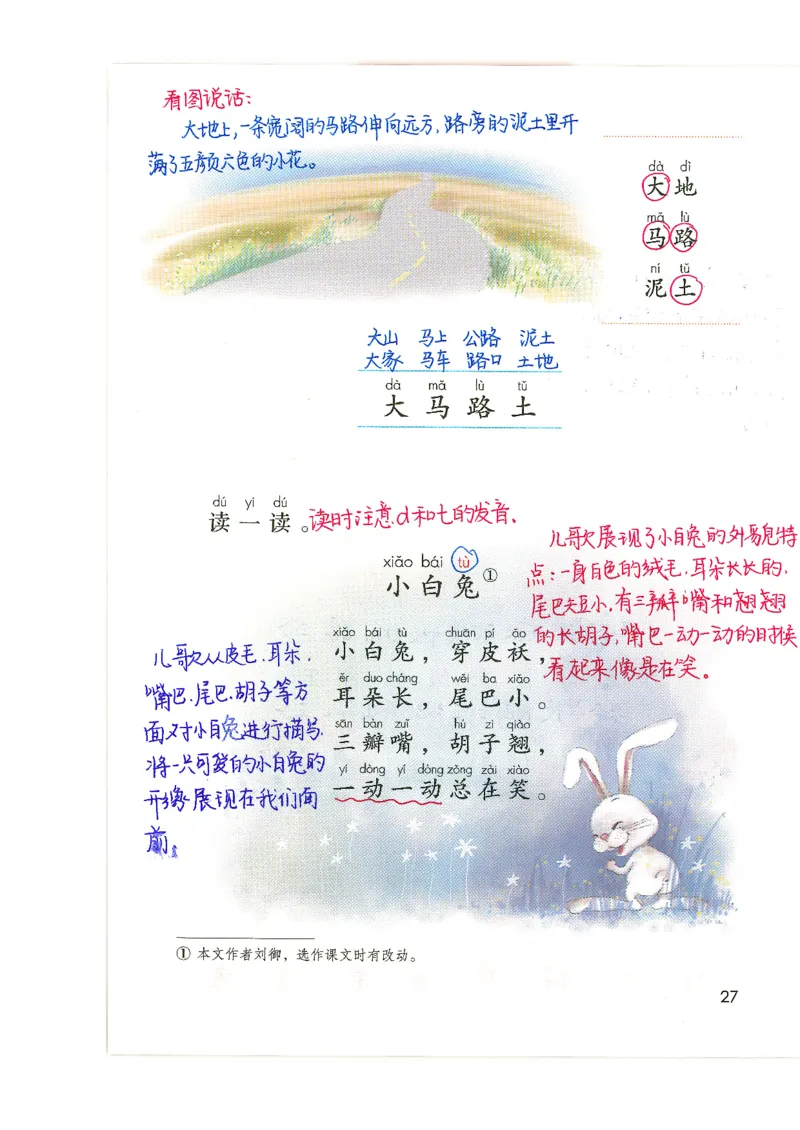 看图说话：
大地上，一条宽阔的马路伸向远方，路旁的泥土里开
满了五颜六色的小花。
dà dì
大地
mǎ lù
马路
ní tǔ
泥土
大山 马上 公路 泥土
大家 马车 路口 土地
dà mǎ lù tǔ
大 马 路 土
dú yi dú
读一读。
读时注意d和t的发音.
xiǎo bái tù
小白兔①
儿歌展现了小白兔的外貌特
点：一身白色的绒毛.耳朵长长的.
尾巴短小,有三瓣嘴和翘翘
的长胡子,嘴巴一动一动的时候
看起来像是在笑。
儿歌从皮毛.耳朵.
嘴巴.尾巴.胡子等方
面对小白兔进行描写.
将一只可爱的小白兔的
形象展现在我们面
前。
xiǎo bái tù chuān pí ǎo
小白兔，穿皮袄，
ěr duo cháng wěi ba xiǎo
耳朵长，尾巴小。
sān bàn zuǐ hú zi qiào
三瓣嘴，胡子翘，
yí dòng yí dòng zǒng zài xiào
一动一动总在笑。
① 本文作者刘御，选作课文时有改动。
27